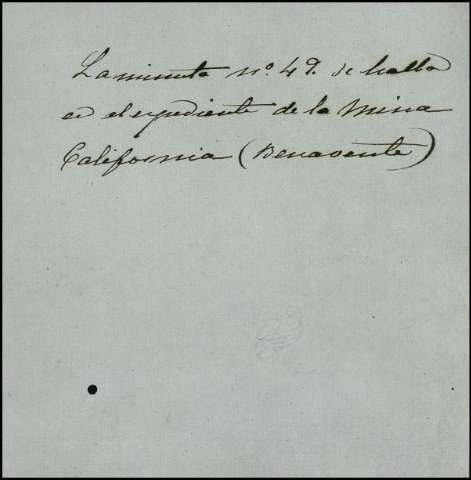 La minuta nº 49. se halla
en el expediente de la Mina
California (Benavente)